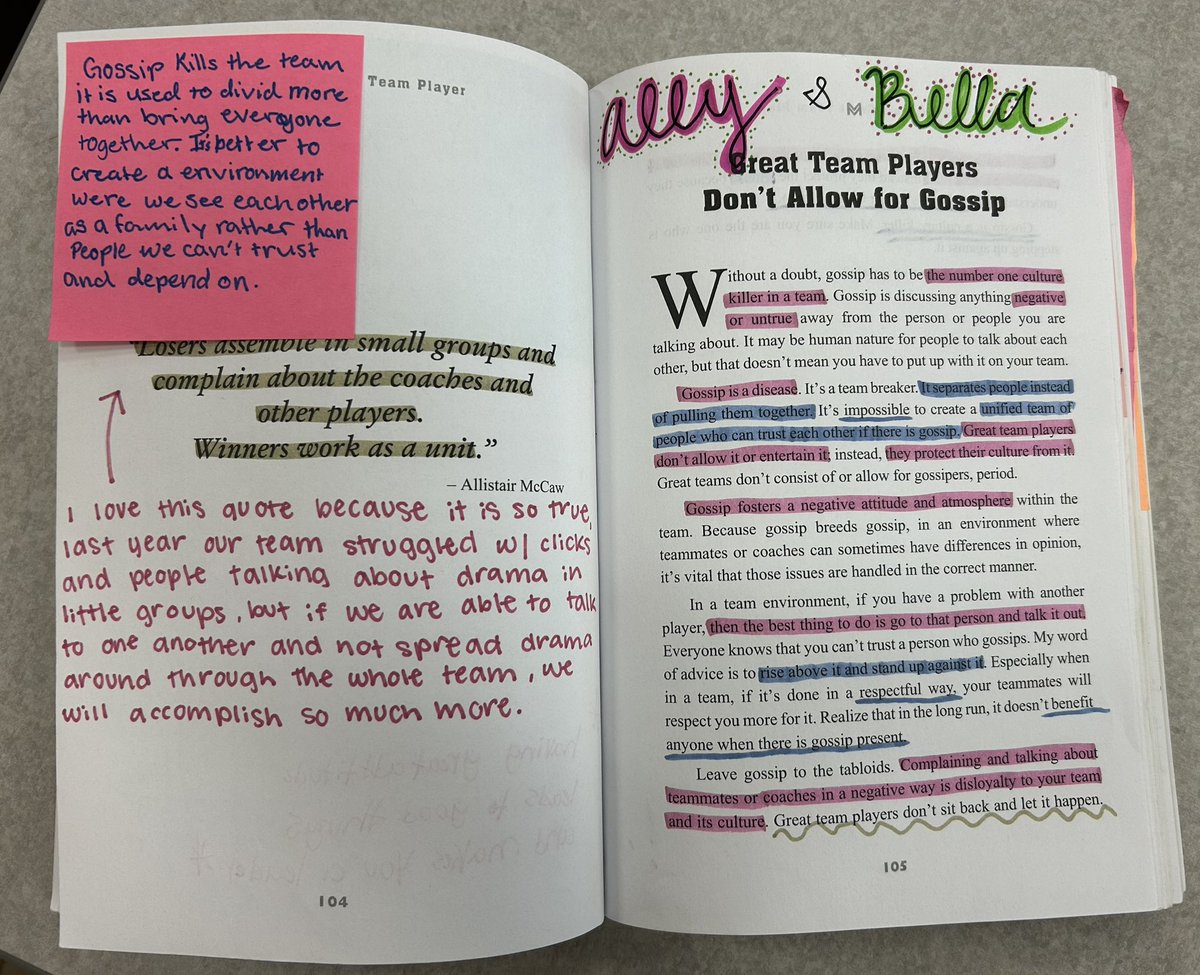 Gossip Kills the team
it is used to divid more
than bring everyone
together. It's better to
create a environment
were we see each other
as a family rather than
People we can't trust
and depend on.
Team Player
"Losers assemble in small groups and
complain about the coaches and
other players.
Winners work as a unit."
– Allistair McCaw
I love this quote because it is so true,
last year our team struggled w/ clicks
and people talking about drama in
little groups, but if we are able to talk
to one another and not spread drama
around through the whole team, we
will accomplish so much more.
104
ally & Bella
Great Team Players
Don't Allow for Gossip
Without a doubt, gossip has to be the number one culture
killer in a team. Gossip is discussing anything negative
or untrue away from the person or people you are
talking about. It may be human nature for people to talk about each
other, but that doesn't mean you have to put up with it on your team.
Gossip is a disease. It's a team breaker. It separates people instead
of pulling them together. It's impossible to create a unified team of
people who can trust each other if there is gossip. Great team players
don't allow it or entertain it; instead, they protect their culture from it.
Great teams don't consist of or allow for gossipers, period.
Gossip fosters a negative attitude and atmosphere within the
team. Because gossip breeds gossip, in an environment where
teammates or coaches can sometimes have differences in opinion,
it's vital that those issues are handled in the correct manner.
In a team environment, if you have a problem with another
player, then the best thing to do is go to that person and talk it out.
Everyone knows that you can't trust a person who gossips. My word
of advice is to rise above it and stand up against it. Especially when
in a team, if it's done in a respectful way, your teammates will
respect you more for it. Realize that in the long run, it doesn't benefit
anyone when there is gossip present.
Leave gossip to the tabloids. Complaining and talking about
teammates or coaches in a negative way is disloyalty to your team
and its culture. Great team players don't sit back and let it happen.
105